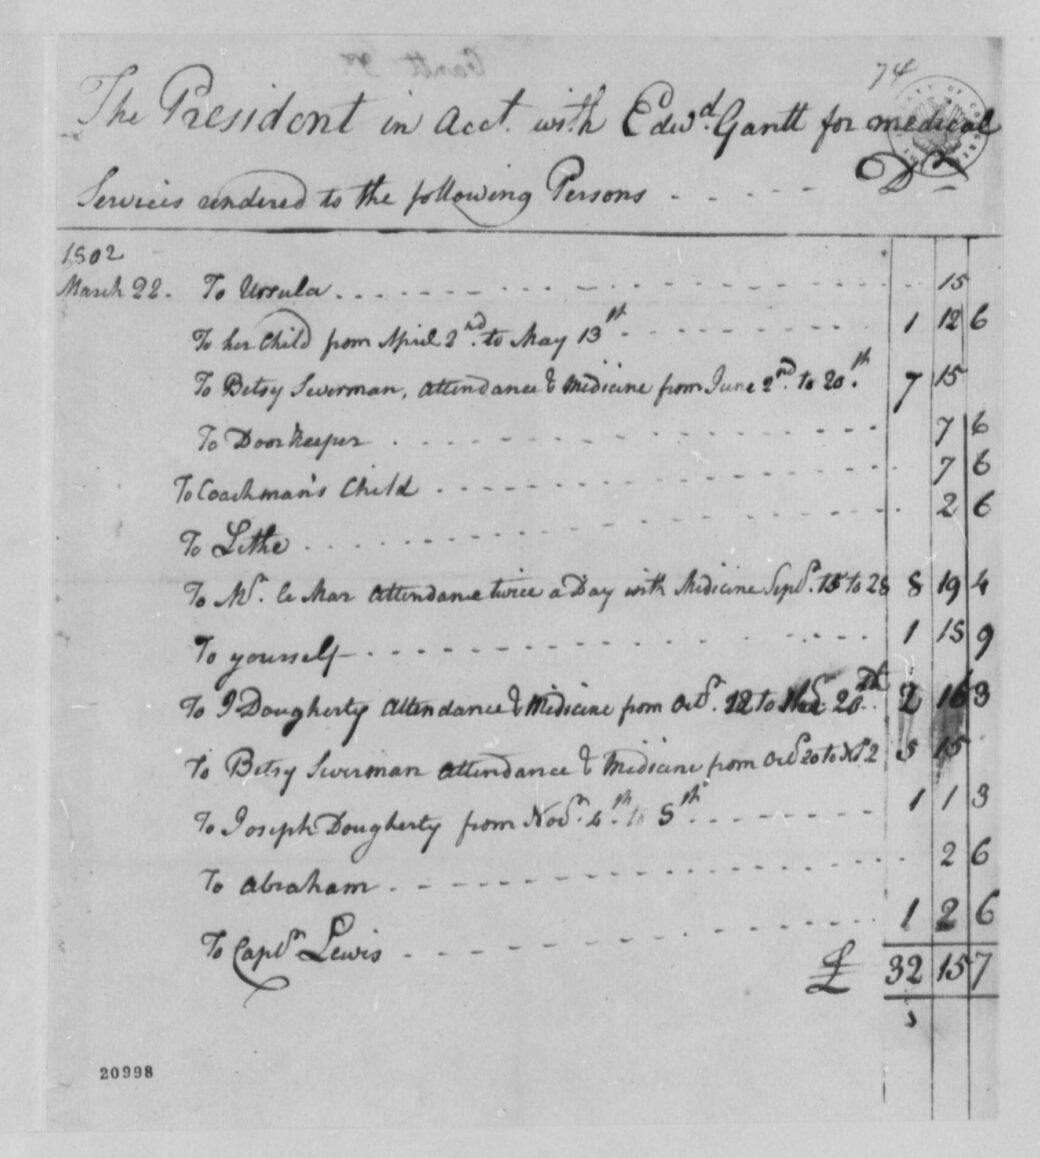 74
The President in Acct. with Edwd. Gantt for medical
Services rendered to the following Persons - - - - - Dr
1802
March 22. To Ursula - - - 15
To her Child from April 2nd. to May 13th - - - 1 12 6
To Betsy Severman, attendance & Medicine from June 2nd. to 20.th 7 15
To Doorkeeper - - - 7 6
To Coachman's Child - - - 7 6
To Lethe - - - 2 6
To Mr. Le Mar attendance twice a Day with Medicine Sepr. 15 to 28 8 19 4
To yourself - - - 1 15 9
To J Dougherty attendance & Medicine from Octr. 12 to 20th 2 16 3
To Betsy Severman attendance & Medicine from Oct 20 to 2 5 15
To Joseph Dougherty from Novr. 4.th to 5th - - - 1 1 3
To Abraham - - - 2 6
To Captn. Lewis - - - 1 2 6
£ 32 15 7
20998